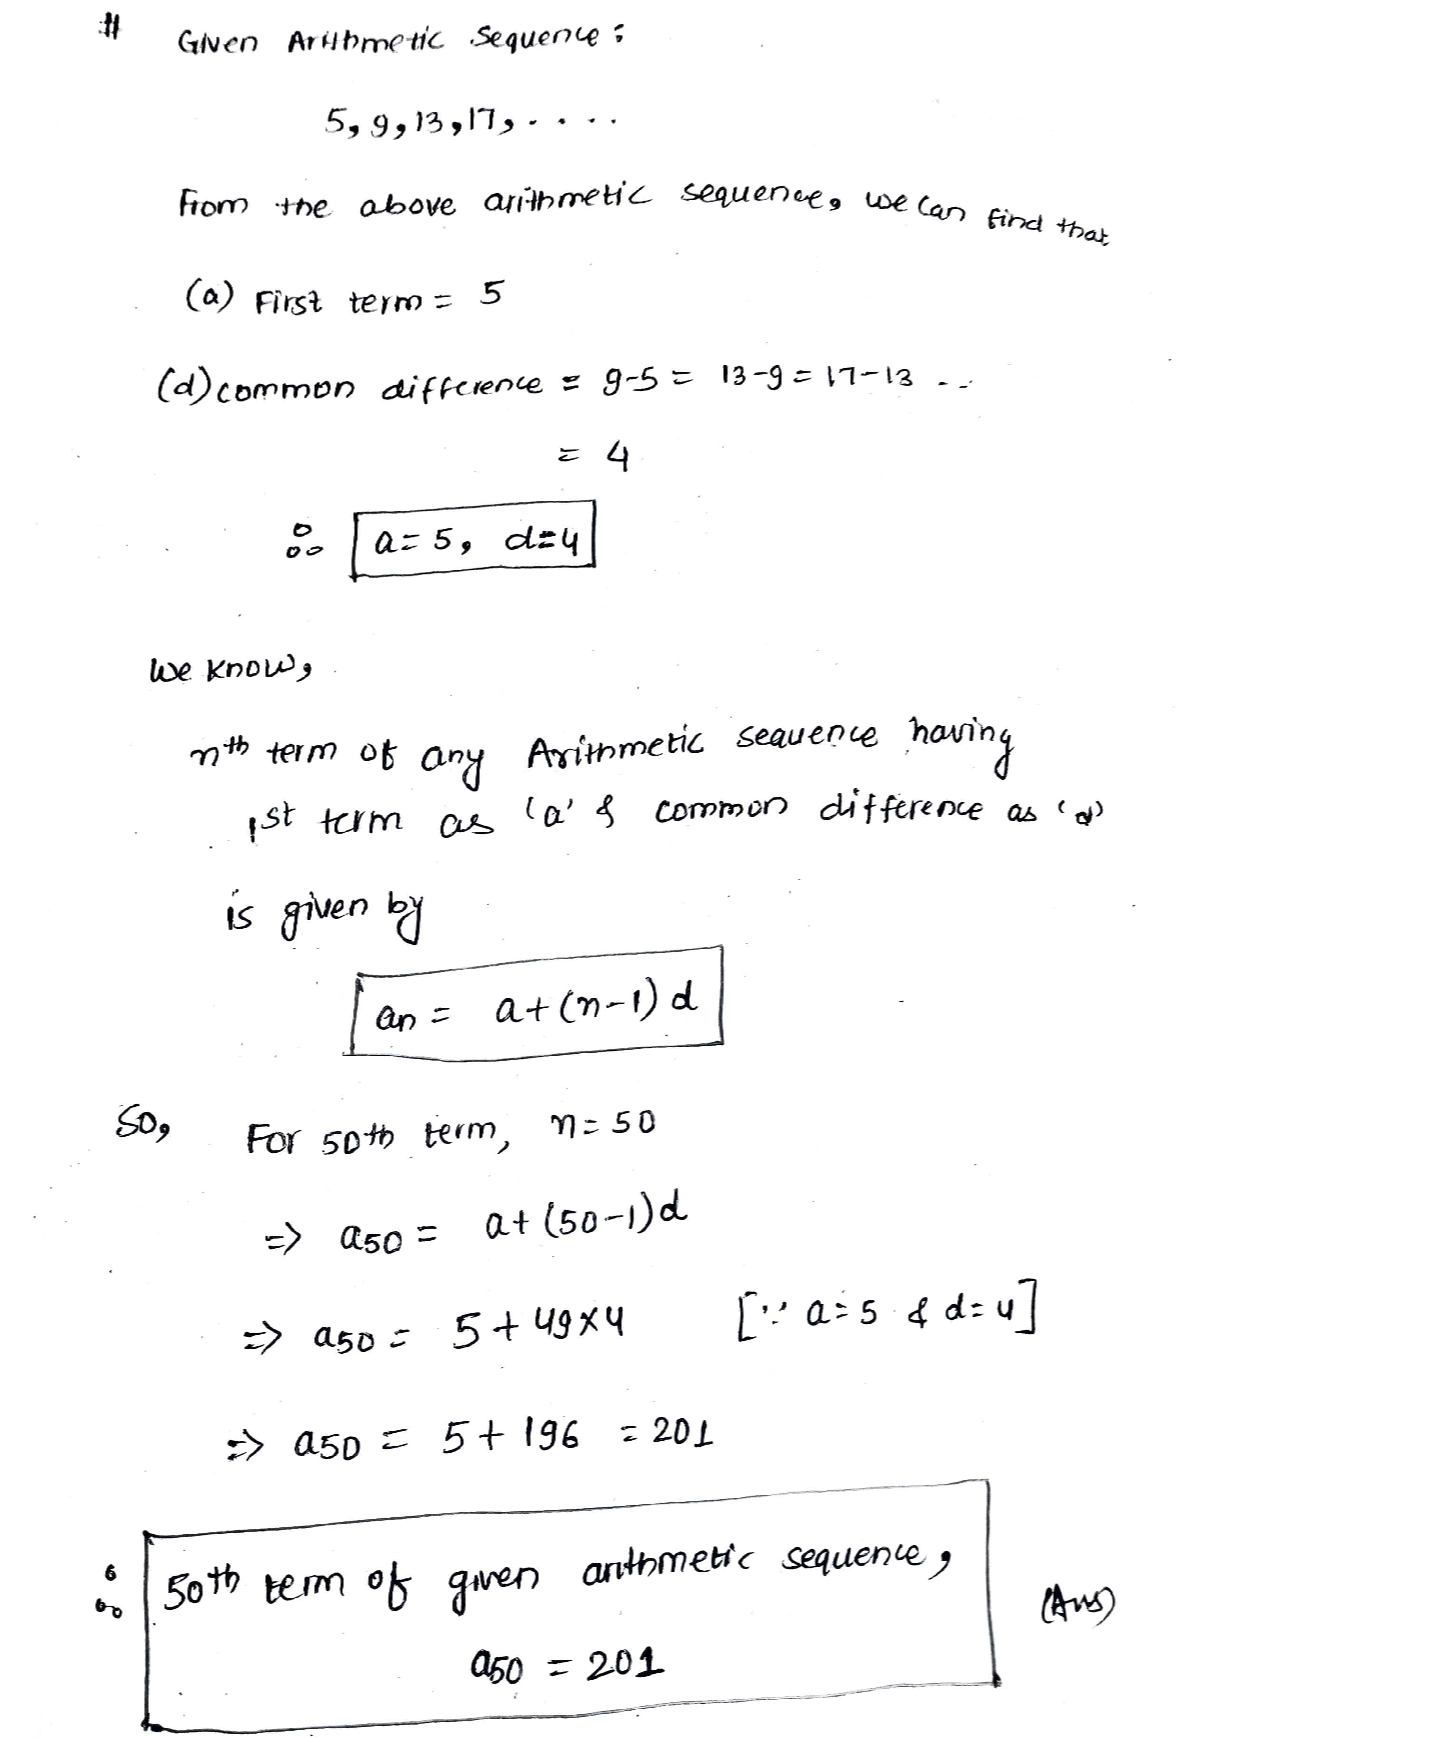 # Given Arithmetic Sequence:
5, 9, 13, 17, ....
From the above arithmetic sequence, we can find that
(a) First term = 5
(d) common difference = 9-5 = 13-9 = 17-13 ..
= 4
∴ a=5, d=4
We know,
nth term of any Arithmetic sequence having
1st term as 'a' & common difference as 'd'
is given by
an = a+(n-1)d
So, For 50th term, n=50
=> a50 = a+(50-1)d
=> a50 = 5+49×4 [∵ a=5 & d=4]
=> a50 = 5+196 = 201
∴ 50th term of given arithmetic sequence,
a50 = 201 (Ans)